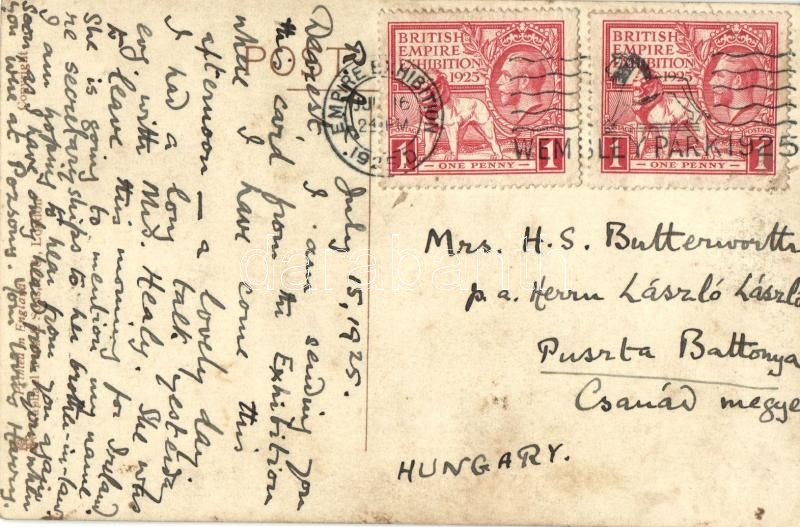 POST
BRITISH
EMPIRE
EXHIBITION
1925
POSTAGE
1 ONE PENNY 1
BRITISH
EMPIRE
EXHIBITION
1925
POSTAGE
1 ONE PENNY 1
EMPIRE EXHIBITION
JUL 16
1925
WEMBLEY PARK 1925
July 15, 1925.
Dearest I am sending you
this card from the Exhibition
where I have come this
afternoon — a lovely day
I had a long talk yesterday
with Mrs. Healy. She was
to leave this morning for Ireland
She is going to mention my name
re secretaryships to her brother-in-law
I am hoping to hear from you again
soon as I have only heard from you when
you were at Pozsony. Your loving Harry.
Mrs. H. S. Butterworth
p.a. Herrn László László
Puszta Battonya
Csanád megye
HUNGARY.
darabanth